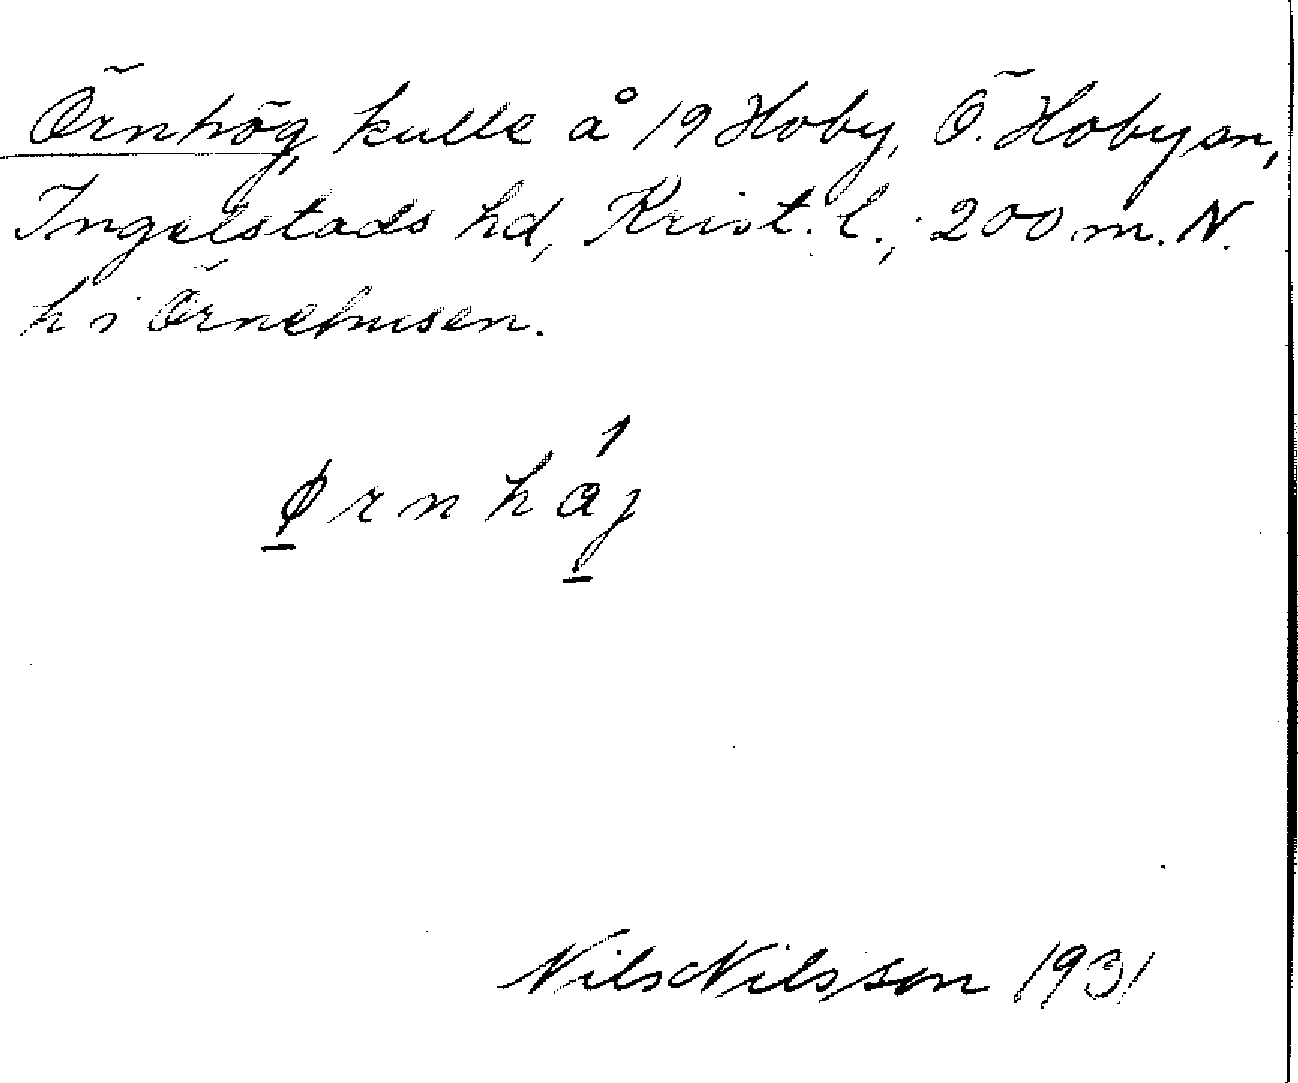 Örnhög, kulle å 19 Hoby, Ö. Hoby sn,
Ingelstads hd, Krist. l.; 200 m. N.
h i Örnehusen.
ø̱rnha̱j
Nils Nilsson 1931